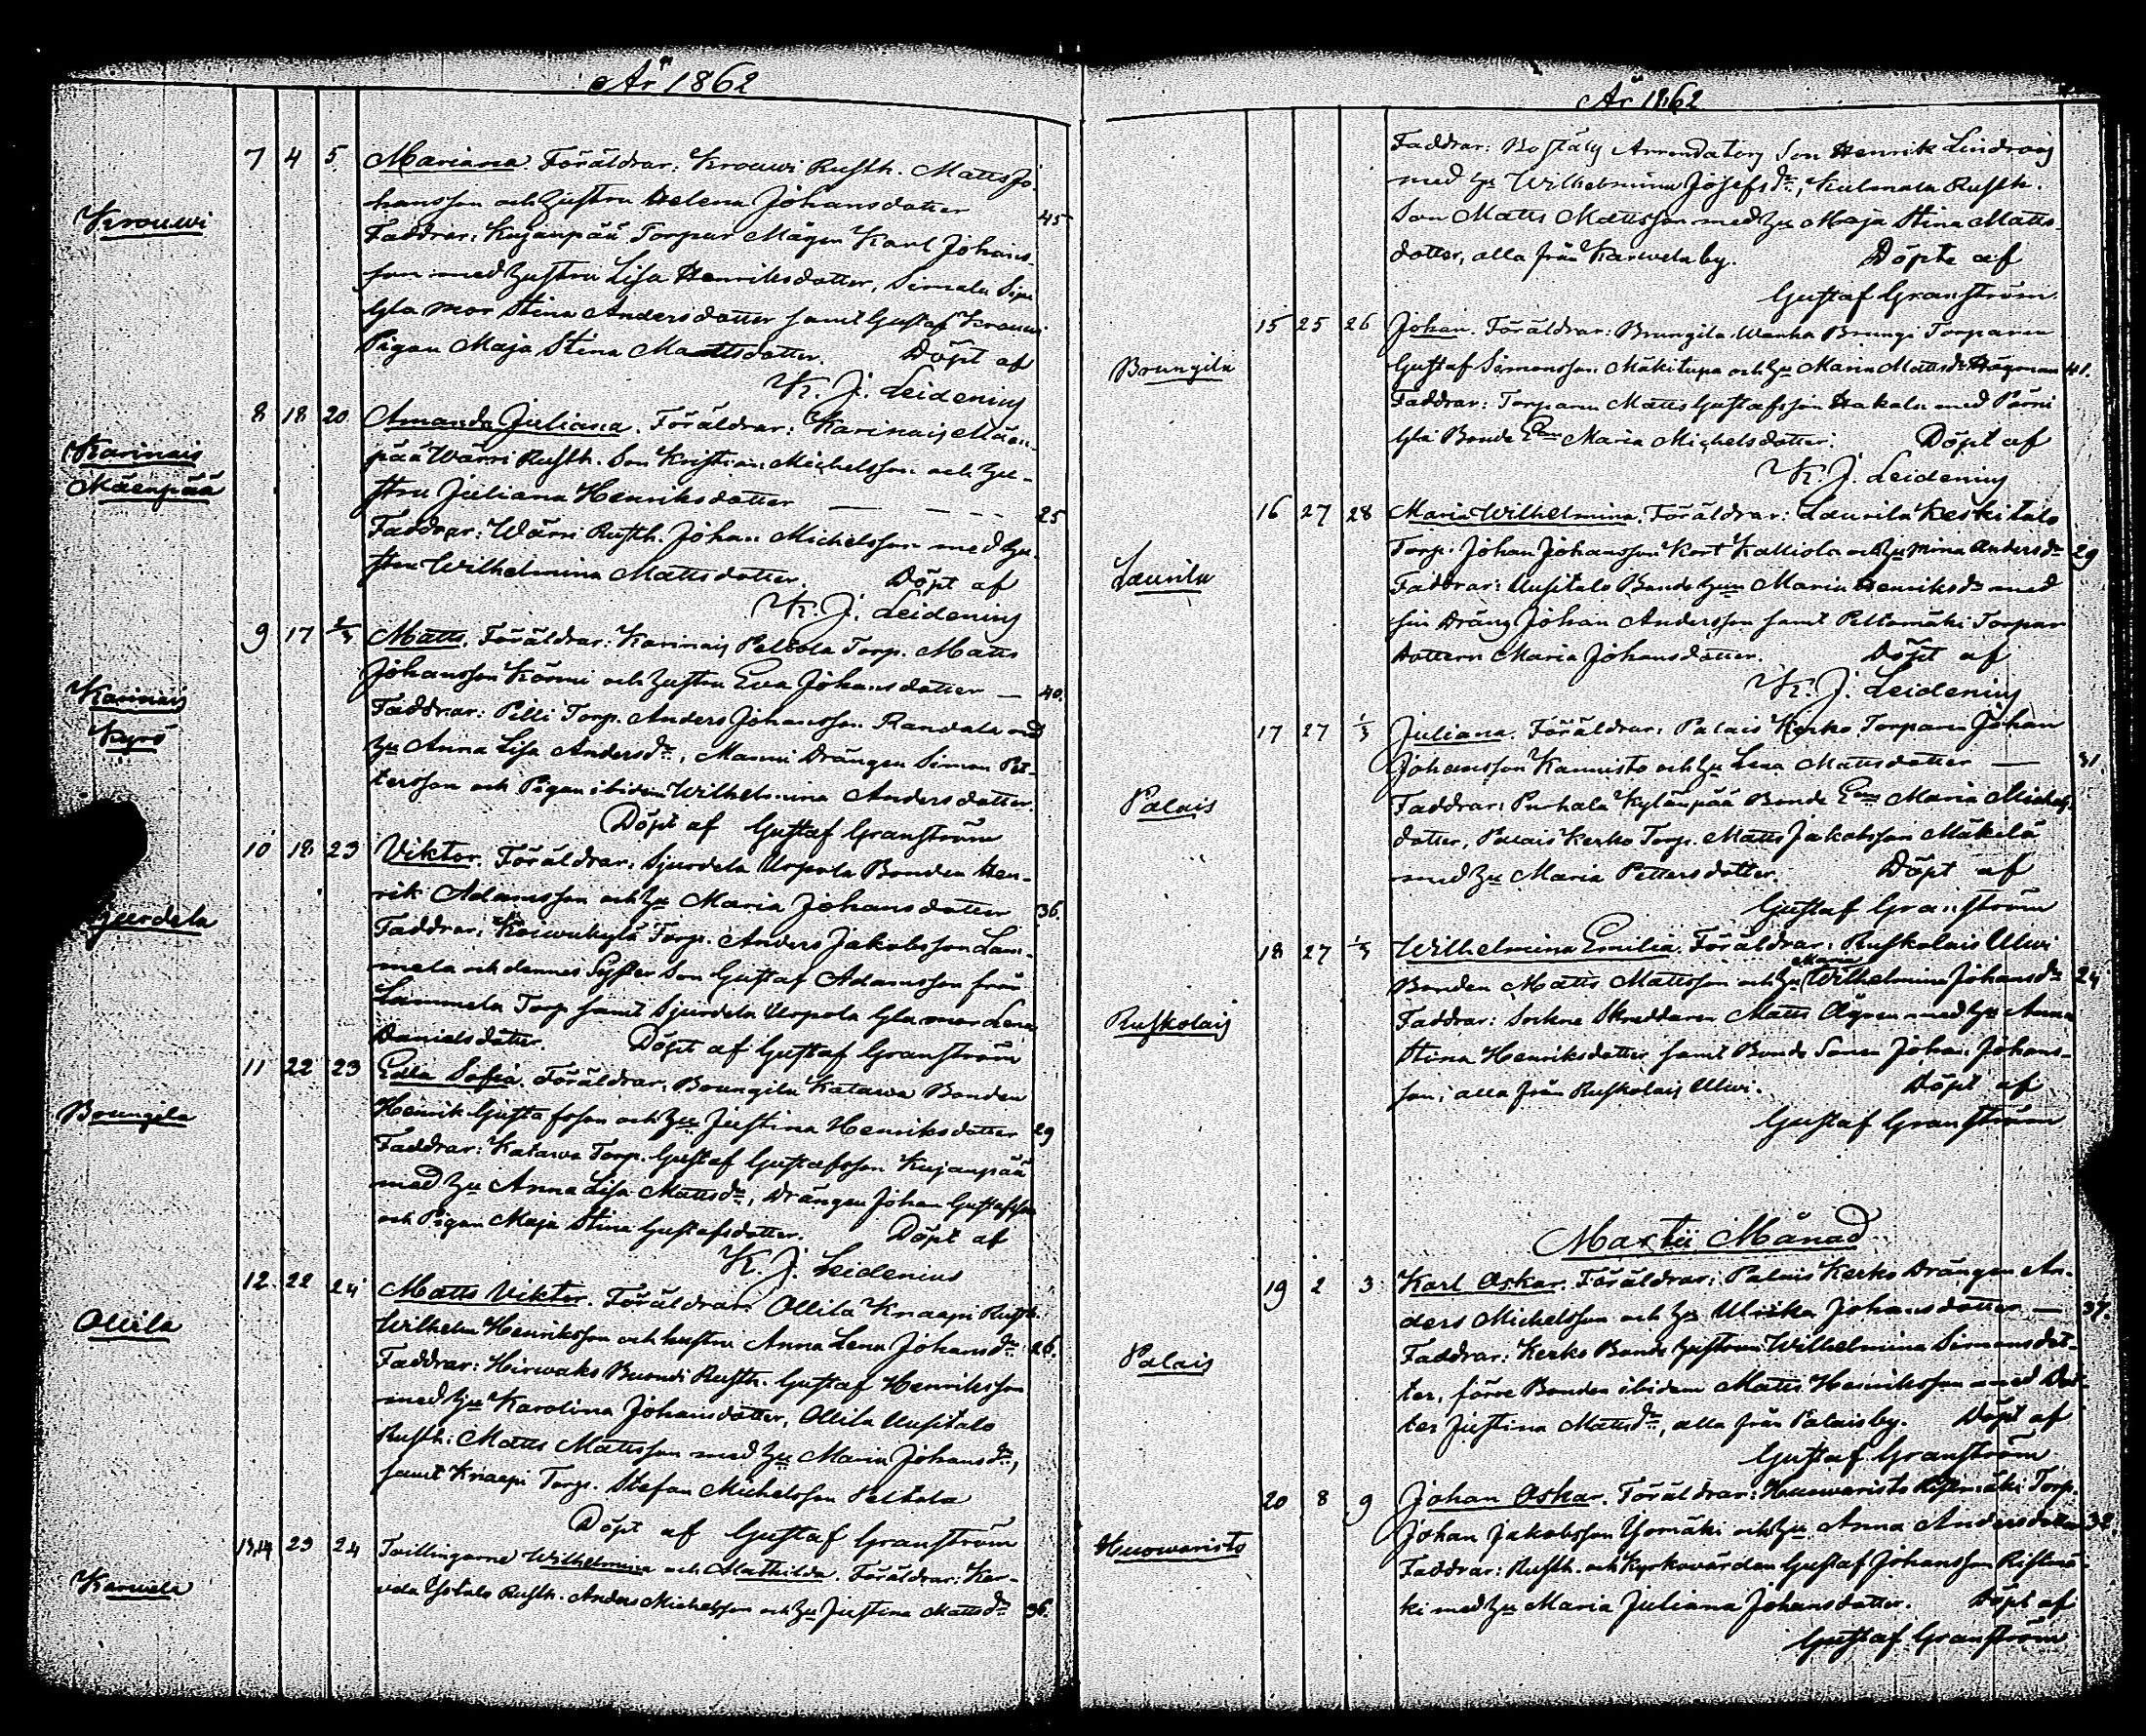 År 1862
Krouwi
7 4 5. Mariana. Föräldrar: Krouwi Rusth. Matts Jo-
hansson och hustru Helena Johansdotter 45
Faddrar: Kujanpää Torpar Mågen Karl Johans-
son med hustru Lisa Henriksdotter,
Gla mor Stina Andersdotter samt Gustaf Krouwi
Pigan Maja Stina Mattsdotter. Döpt af
K. J. Leidenius
Karinais
Mäenpää
8 18 20 Amanda Juliana. Föräldrar: Karinais Mäen-
pää Wärri Rusth. Son Kristian Michelsson och hu-
stru Juliana Henriksdotter 25
Faddrar: Wärri Rusth. Johan Michelsson med hu-
stru Wilhelmina Mattsdotter. Döpt af
K. J. Leidenius
Karinais
Kyrö
9 17 2/3 Matts. Föräldrar: Karinais Peltola Torp. Matts
Johansson Körmi och hustru Eva Johansdotter — 40.
Faddrar: Pilli Torp. Anders Johansson Randala med
hu Anna Lisa Andersdr, Manni Drängen Simon Pet-
tersson och Pigan ibidem Wilhelmina Andersdotter.
Döpt af Gustaf Granström
jurdela
10 18 23 Viktor. Föräldrar: Sjurdela Urpola Bonden Hen-
rik Adamsson och hu Maria Johansdotter 36.
Faddrar: Koiwukylä Torp. Anders Jakobsson Lam-
mela och dennes Syster Son Gustaf Adamsson från
Lammela Torp samt Sjurdela Urpola Gla mor Lena
Danielsdotter. Döpt af Gustaf Granström
Brungila
11 22 23 Edla Sofia. Föräldrar: Brungila Katawa Bonden
Henrik Gustafsson och hu Justina Henriksdotter 29
Faddrar: Katawa Torp. Gustaf Gustafsson Kujanpää
med hu Anna Lisa Mattsdr, Drängen Johan Gustafsson
och Pigan Maja Stina Gustafsdotter. Döpt af
K. J. Leidenius
Ollila
12. 22 24 Matts Viktor. Föräldrar: Ollila Knaapi Rusth.
Wilhelm Henriksson och hustru Anna Lena Johansdr 26.
Faddrar: Hirwaks Buondi Rusth. Gustaf Henriksson
med hu Karolina Johansdotter, Ollila Uusitalo
Rusth: Matts Mattsson med hu Maria Johansdr,
samt Knaapi Torp. Stefan Michelsson Peltola
Döpt af Gustaf Granström
Karwela
13,14 23 24 Tvillingarne Wilhelmina och Mathilda. Föräldrar: Kar-
vela Ystalo Rusth. Anders Michelsson och hu Justina Mattsdr 36.
År 1862
Faddrar: Boställs Arrendators Son Henrik Lindroos
med hu Wilhelmina Josefsdr, Kulmala Rusth.
Son Matts Mattsson med hu Maja Stina Matts-
dotter, alla från Karwela by. Döpte af
Gustaf Granström.
Brungila
15 25 26 Johan. Föräldrar: Brungila Wanha Brungi Torparen
Gustaf Simonsson Mäkitupa och hu Maria Mattsdr Hägman 41.
Faddrar: Torparen Matts Gustafsson Hakala med Pärni
Gla Bonde Maria Michelsdotter. Döpt af
K. J. Leidenius
Laurila
16 27 28 Maria Wilhelmina. Föräldrar: Laurila Keskitalo
Torp. Johan Johansson Kort Kalliola och hu Mina Andersdr 29
Faddrar: Uusitalo Bonde hun Maria Henriksdr med
sin Dräng Johan Andersson samt Peltomäki Torpar
Dottern Maria Johansdotter. Döpt af
K. J. Leidenius
Palais
17 27 1/3 Juliana. Föräldrar: Palais Kerko Torparen Johan
Johansson Kannisto och hu Lena Mattsdotter — 31.
Faddrar: Purhala Kylänpää Bonde Maria Michels-
dotter, Palais Kerko Torp. Matts Jakobsson Mäkelä
med hu Maria Pettersdotter. Döpt af
Gustaf Granström
Ruskolais
18 27 1/3 Wilhelmina Emilia. Föräldrar: Ruskolais Uluvi
Bonden Matts Mattsson och hu Maria Wilhelmina Johansdr 24
Faddrar: Sockne Skreddaren Matts Ögren med hu Anna
Stina Henriksdotter samt Bonde Sonen Johan Johans-
son, alla från Ruskolais Uluvi. Döpt af
Gustaf Granström
Martii Månad
Palais
19 2 3 Karl Oskar. Föräldrar: Palais Kerko Drängen An-
ders Michelsson och hu Ulrika Johansdotter — 37.
Faddrar: Kerko Bonde hustrun Wilhelmina Simonsdot-
ter, förre Bonden ibidem Matts Henriksson med Dot-
ter Justina Mattsdr, alla från Palais by. Döpt af
Gustaf Granström
Huowaristo
20 8 9 Johan Oskar. Föräldrar: Huowaristo Ristimäki Torp.
Johan Jakobsson Yomäki och hu Anna Andersdotter 32.
Faddrar: Rusth. och Kyrkovärden Gustaf Johansson Ristimä-
ki med hu Maria Juliana Johansdotter. Döpt af
Gustaf Granström